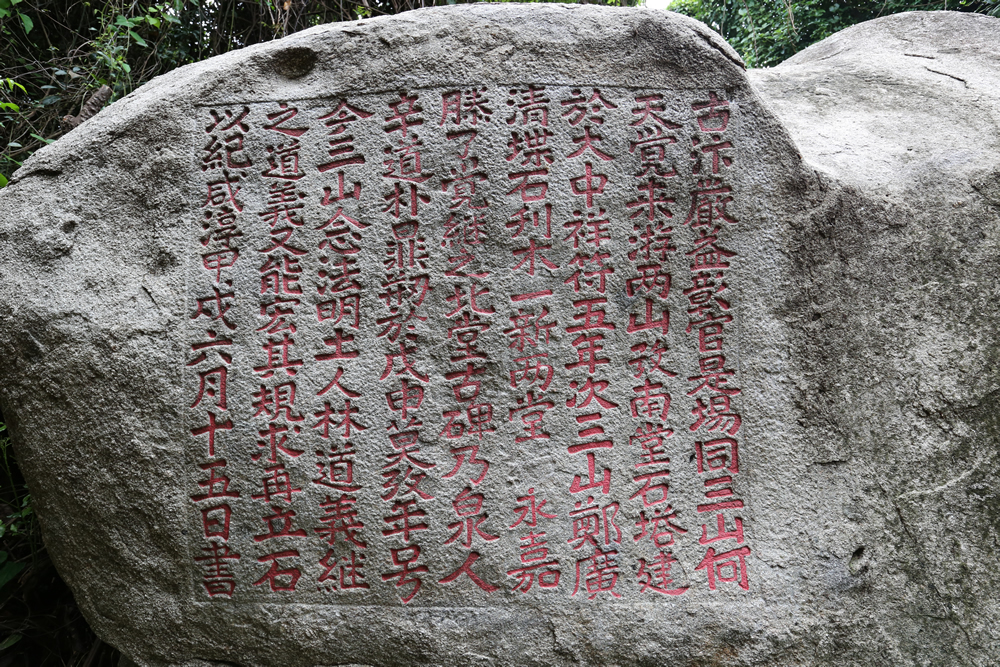 古汴嚴益彰官是場同三山何
天覺来游两山攷南堂石塔建
於大中祥符五年次三山鄭廣
清堞石利木一新两堂 永嘉
滕了覺継之北堂古碑乃泉人
辛道朴鼎刱於戊申莫攷年号
今三山念法明土人林道義継
之道義又能宏其規求再立石
以紀咸淳甲戌六月十五日書